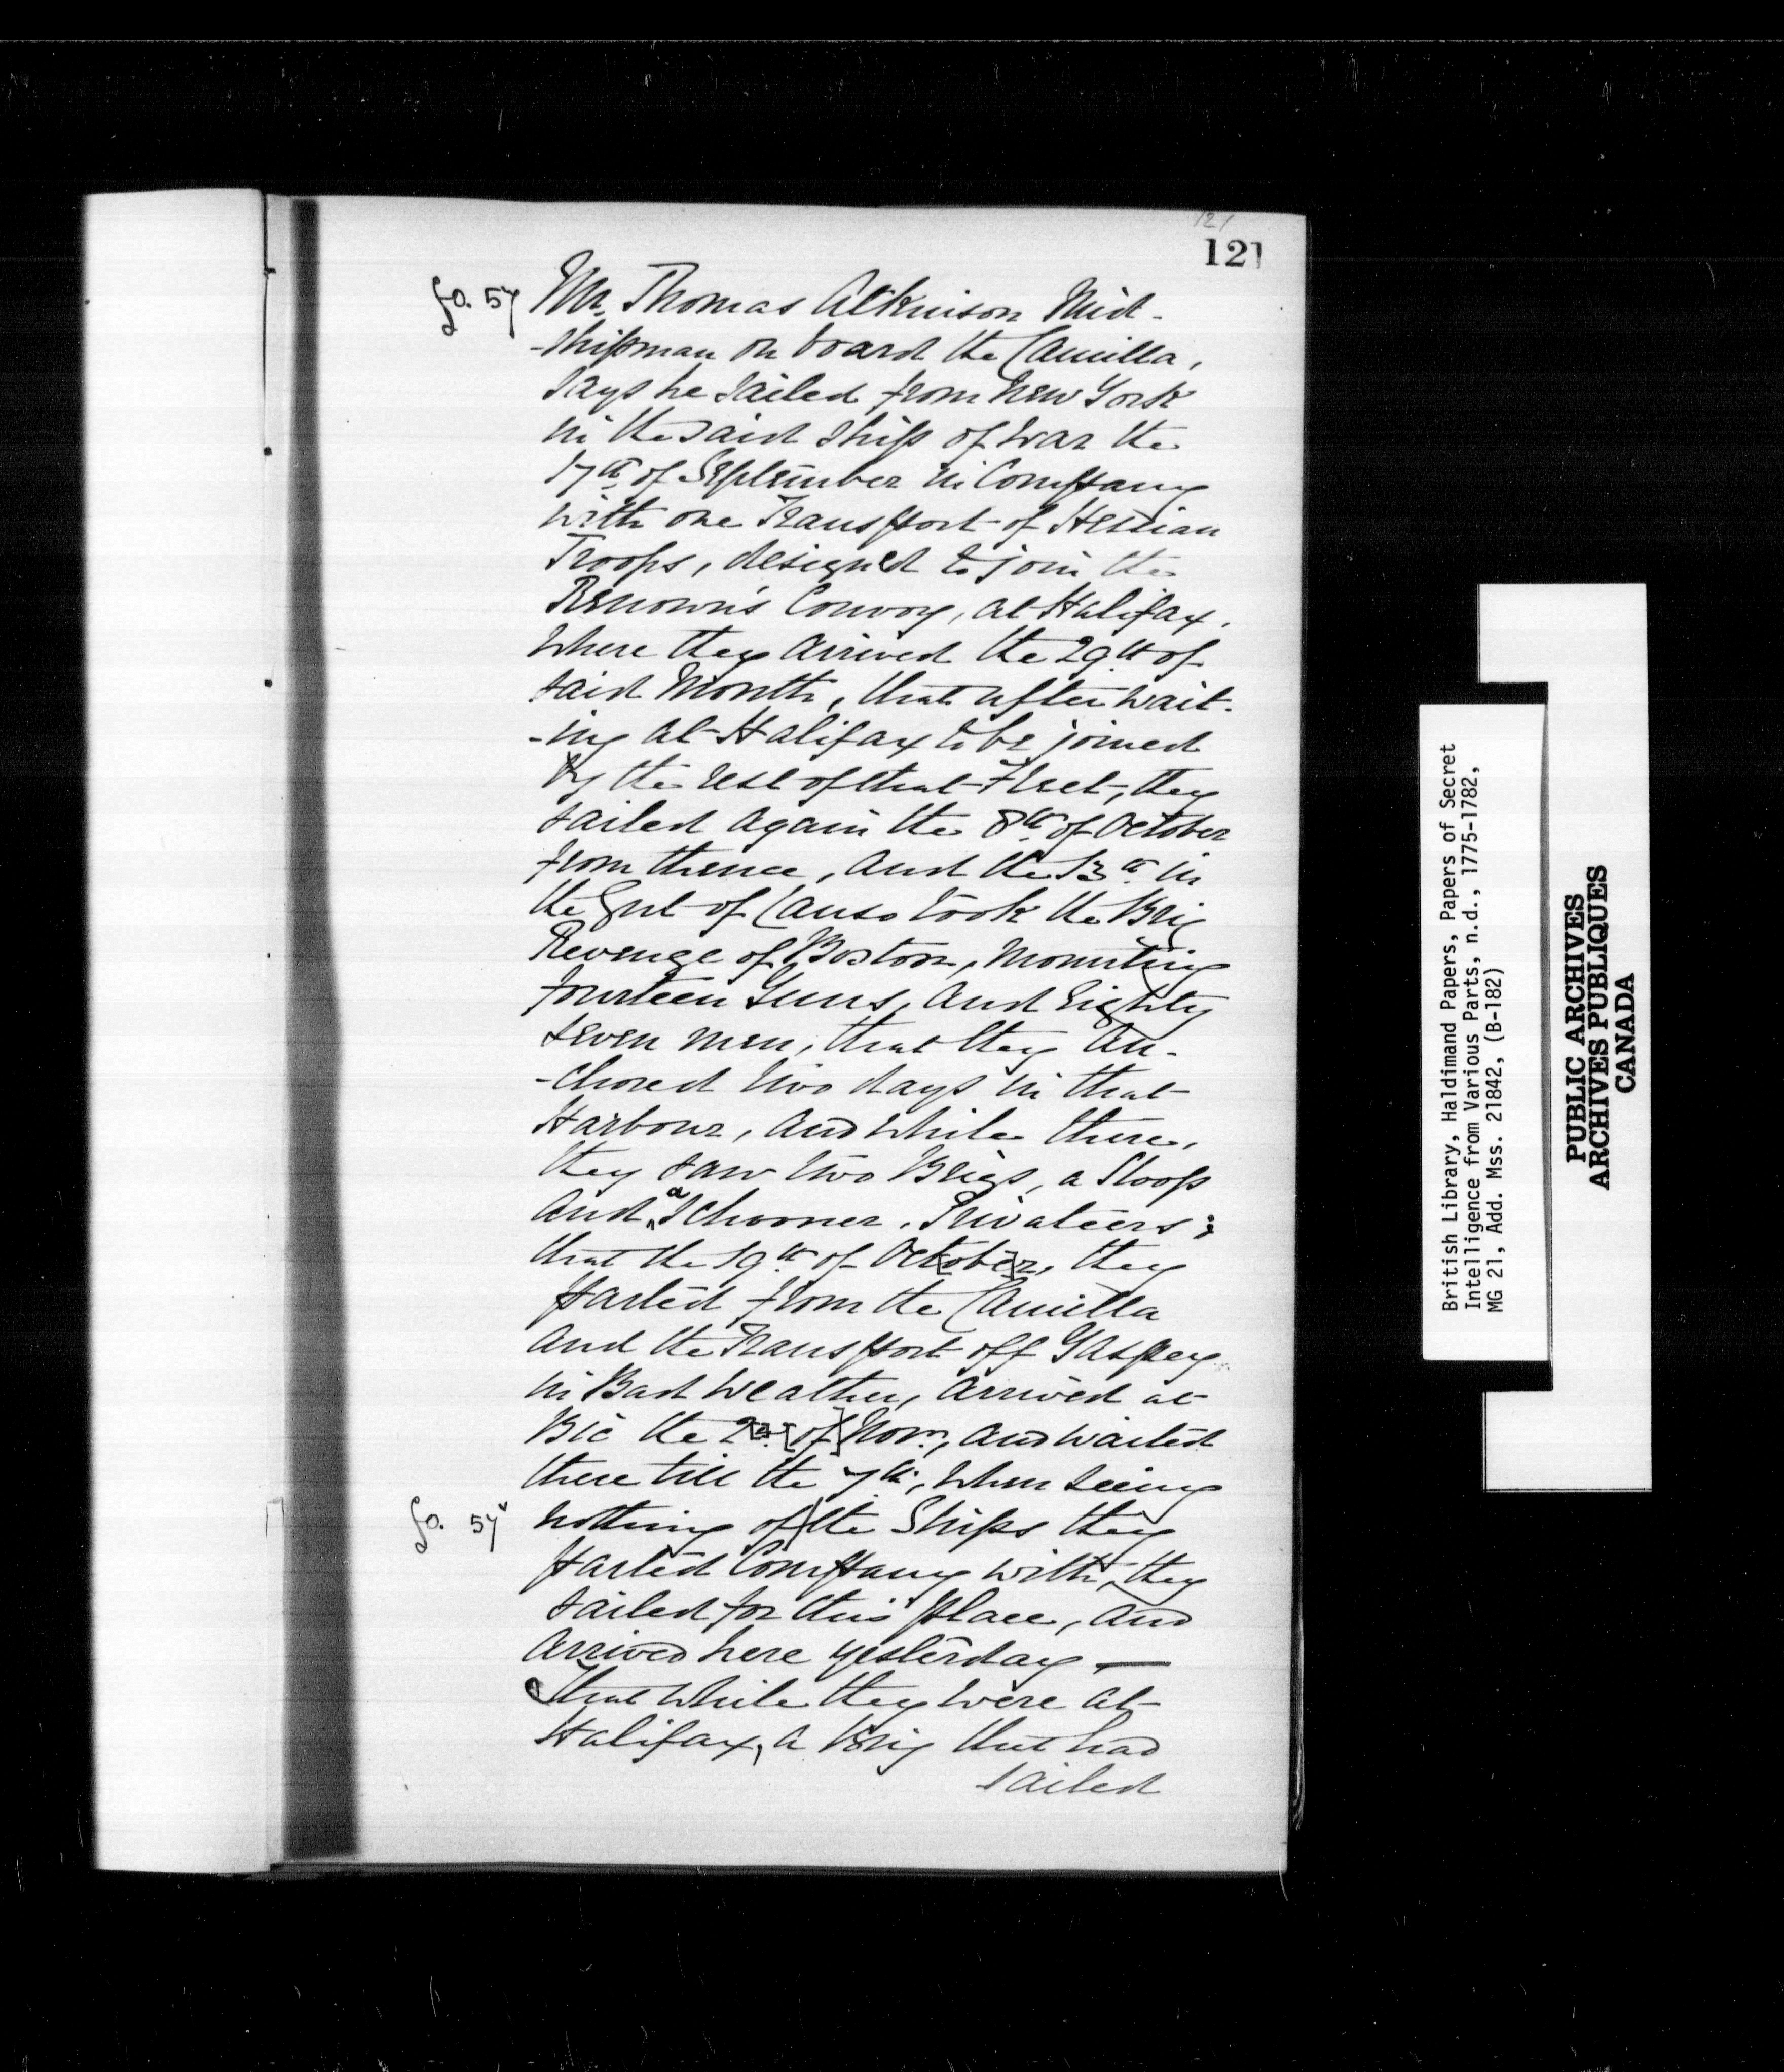 121
121
fo. 57 Mr. Thomas Atkinson Mid-
-shipman on board the Camilla,
says he sailed from New York
in the said Ship of War the
17th of September in Company
with one Transport of Hessian
Troops, designed to join the
Renown's Convoy, at Halifax,
where they arrived the 29th of
said Month, that after wait-
-ing at Halifax to be joined
by the rest of that Fleet, they
sailed again the 8th of October
from thence, and the 13th in
the Gut of Canso took the Brig
Revenge of Boston, mounting
fourteen Guns, and Eighty
seven men, that they An-
-chored two days in that
Harbour, and while there,
they saw two Brigs, a Sloop
and a Schooner, Privateers;
that the 19th of October, they
parted from the Camilla
and the Transport off Gaspey
in Bad Weather, arrived at
Bic the 2d of Novr., and waited
there till the 7th, when seeing
fo. 57v nothing of the Ships they
parted Company with, they
sailed for this place, and
arrived here yesterday —
That while they were at
Halifax, a Brig that had
sailed
British Library, Haldimand Papers, Papers of Secret
Intelligence from Various Parts, n.d., 1775-1782,
MG 21, Add. Mss. 21842, (B-182)
PUBLIC ARCHIVES
ARCHIVES PUBLIQUES
CANADA